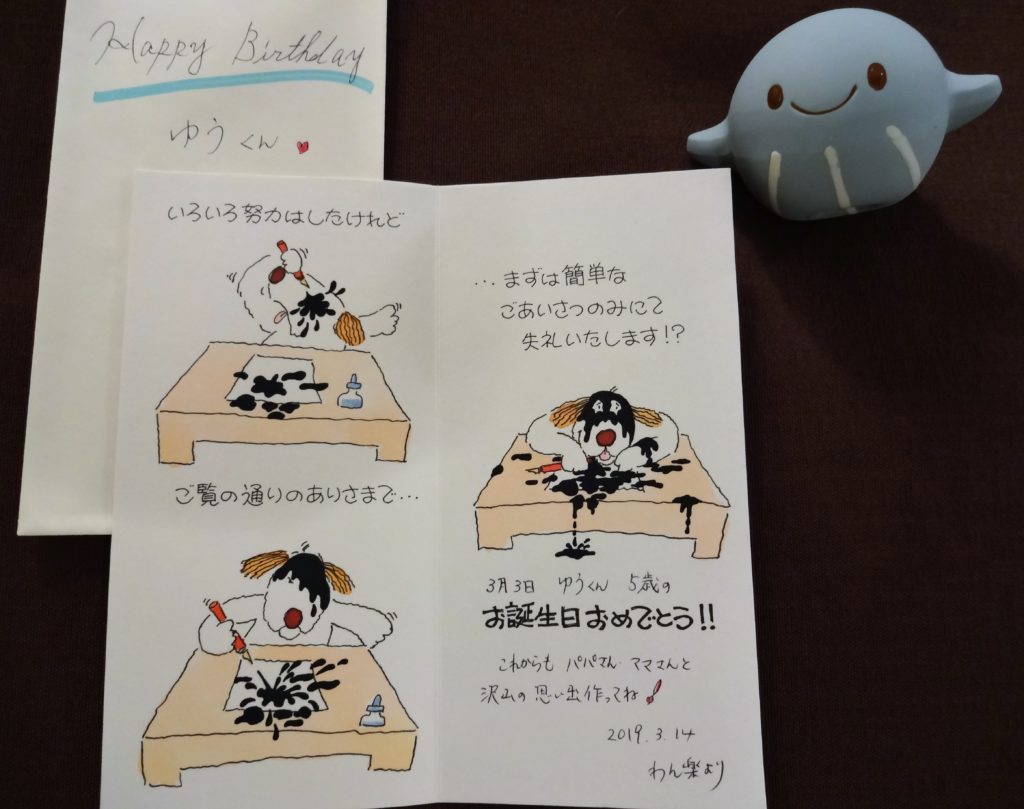 Happy Birthday
ゆうくん
いろいろ努力はしたけれど
ご覧の通りのありさまで…
…まずは簡単な
ごあいさつのみにて
失礼いたします!?
3月3日 ゆうくん 5歳の
お誕生日おめでとう!!
これからも パパさん ママさんと
沢山の思い出作ってね
2019.3.14
わん楽より